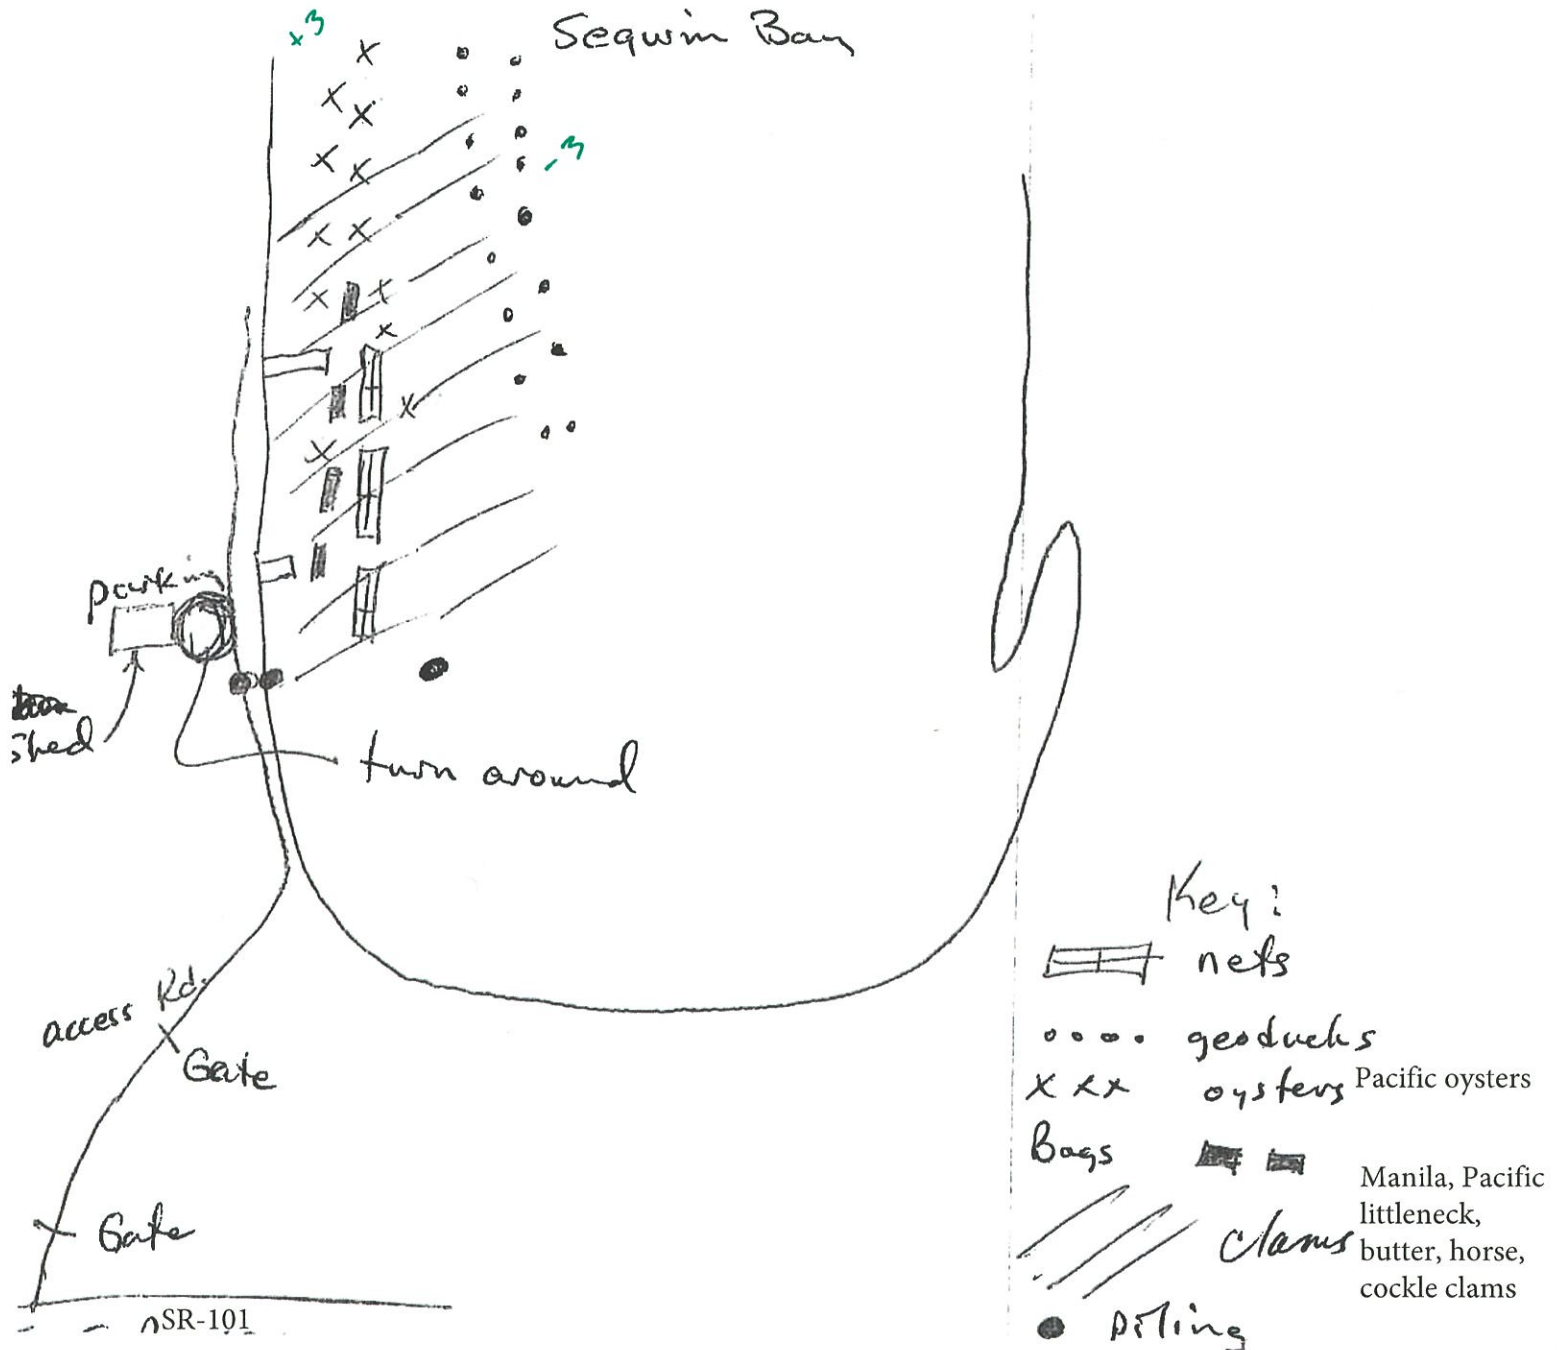 +3
Sequim Bay
-3
parking
shed
turn around
access Rd.
Gate
Gate
SR-101
Key:
nets
geoducks
oysters Pacific oysters
Bags
clams
Manila, Pacific
littleneck,
butter, horse,
cockle clams
piling